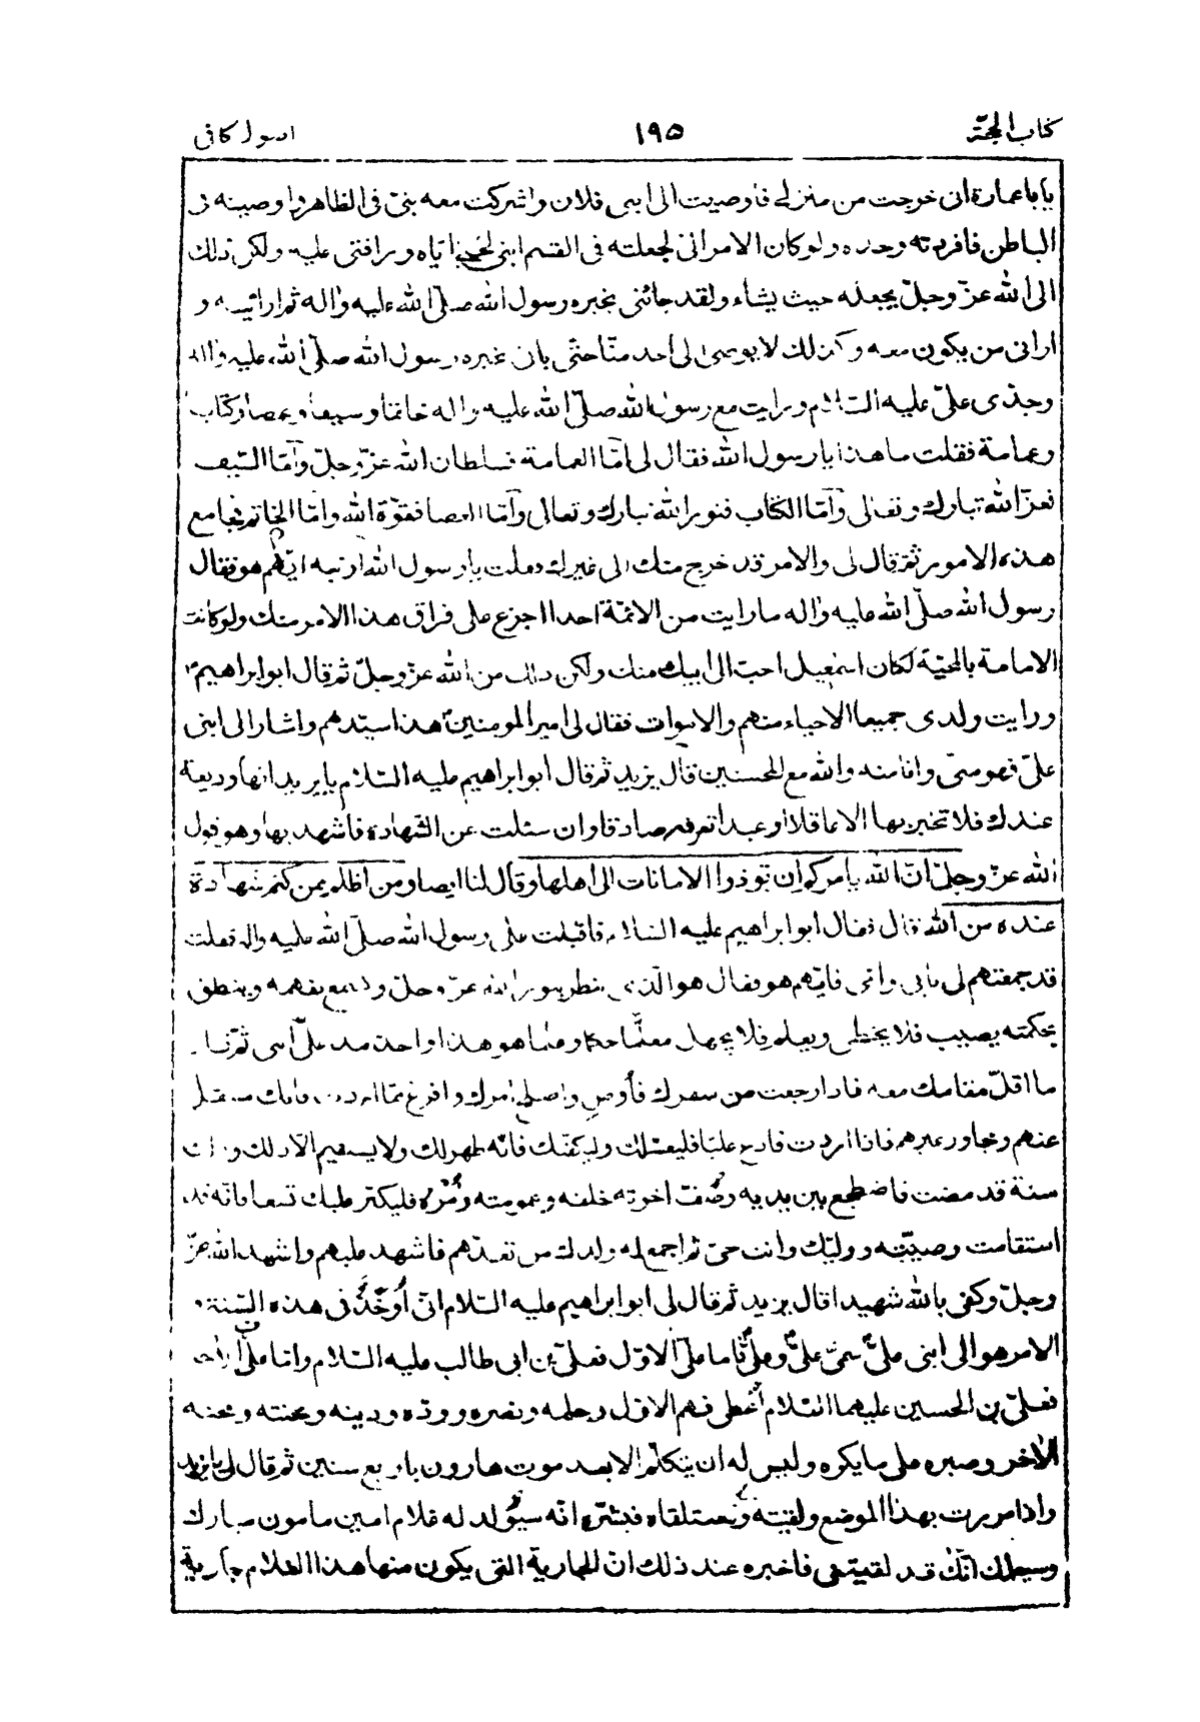 كتاب الحجّة ١٩٥ اصول كافى
يا باعمارة انى خرجت من منزلى فاوصيت الى ابنى فلان واشركت معه بنىّ فى الظاهر واوصيته فى
الباطن فافردته وحده ولو كان الامر الىّ لجعلته فى القسم ابنى لحبّى ايّاه ورافتى عليه ولكن ذلك
الى الله عزّ وجلّ يجعله حيث يشاء ولقد جائنى بخبره رسول الله صلّى الله عليه واله ثم ارانيه و
ارانى من يكون معه وكذلك لا يوصى الى احد منّا حتّى ياتى بخبره رسول الله صلّى الله عليه واله
وجدّى علىّ عليه السلام ورايت مع رسول الله صلّى الله عليه واله خاتما وسيفا وعصا وكتابا
وعمامة فقلت ما هذا يا رسول الله فقال لى امّا العمامة فسلطان الله عزّ وجلّ وامّا السّيف
فعزّ الله تبارك وتعالى وامّا الكتاب فنور الله تبارك وتعالى وامّا العصا فقوّة الله وامّا الخاتم فجامع
هذه الامور ثم قال لى والامر قد خرج منك الى غيرك فقلت يا رسول الله ارنيه ايّهم هو فقال
رسول الله صلّى الله عليه واله ما رايت من الائمّة احدا اجزع على فراق هذا الامر منك ولو كانت
الامامة بالمحبّة لكان اسمعيل احبّ الى ابيك منك ولكن ذلك من الله عزّ وجلّ ثم قال ابو ابراهيم ؑ
ورايت ولدى جميعا الاحياء منهم والاموات فقال لى امير المومنين ؑ هذا سيّدهم واشار الى ابنى
علىّ فهو منّى وانا منه والله مع المحسنين قال يزيد ثم قال ابو ابراهيم عليه السّلام يا يزيد انها وديعة
عندك فلا تخبر بها الا عاقلا او عبدا تعرفه صادقا وان سئلت عن الشّهادة فاشهد بها وهو قول
الله عزّ وجلّ انّ الله يامركم ان تودّوا الامانات الى اهلها وقال لنا ايضا ومن اظلم ممن كتم شهادة
عنده من الله قال فقال ابو ابراهيم عليه السّلام فاقبلت على رسول الله صلّى الله عليه واله فقلت
قد جمعتهم لى بابى وامّى فايّهم هو فقال هو الّذى ينظر بنور الله عزّ وجلّ ويسمع بفهمه وينطق
بحكمته يصيب فلا يخطى ويعلم فلا يجهل معلّما حكما وعلما هو هذا واخذ بيد علىّ ابنى ثم قال
ما اقلّ مقامك معه فاذا رجعت من سفرك فأوص واصلح امرك وافرغ ممّا اردت فانك منتقل
عنهم ومجاور غيرهم فاذا اردت فادع عليّا فليغسّلك وليكفّنك فانّه طهر لك ولا يستقيم الّا ذلك وذلك
سنة قد مضت فاضطجع بين يديه وصُفّ اخوته خلفه وعمومته ومُرْه فليكبّر عليك تسعا فانّه قد
استقامت وصيّته ووليّك وانت حىّ ثم اجمع له ولدك من تعدّهم فاشهد عليهم واشهد الله عزّ
وجلّ وكفى بالله شهيدا قال يزيد ثم قال لى ابو ابراهيم عليه السّلام انّى اُوخَذُ فى هذه السّنة و
الامر هو الى ابنى علىّ سمىّ علىّ وعلىّ فاما علىّ الاوّل فعلىّ بن ابى طالب عليه السّلام وامّا علىّ الآخر
فعلىّ بن الحسين عليهما السّلام اُعْطى فهم الاوّل وحلمه ونصره وودّه ودينه ومحنته ومحنة
الآخر وصبره على ما يكره وليس له ان يتكلّم الا بعد موت هارون باربع سنين ثم قال لى يا يزيد
واذا مررت بهذا الموضع ولقيته وستلقاه فبشّره انّه سيُولد له غلام امين مامون مبارك
وسيعلمك انّك قد لقيتنى فاخبره عند ذلك انّ الجارية التى يكون منها هذا الغلام جارية